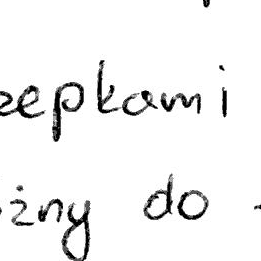 zepkami
żny do